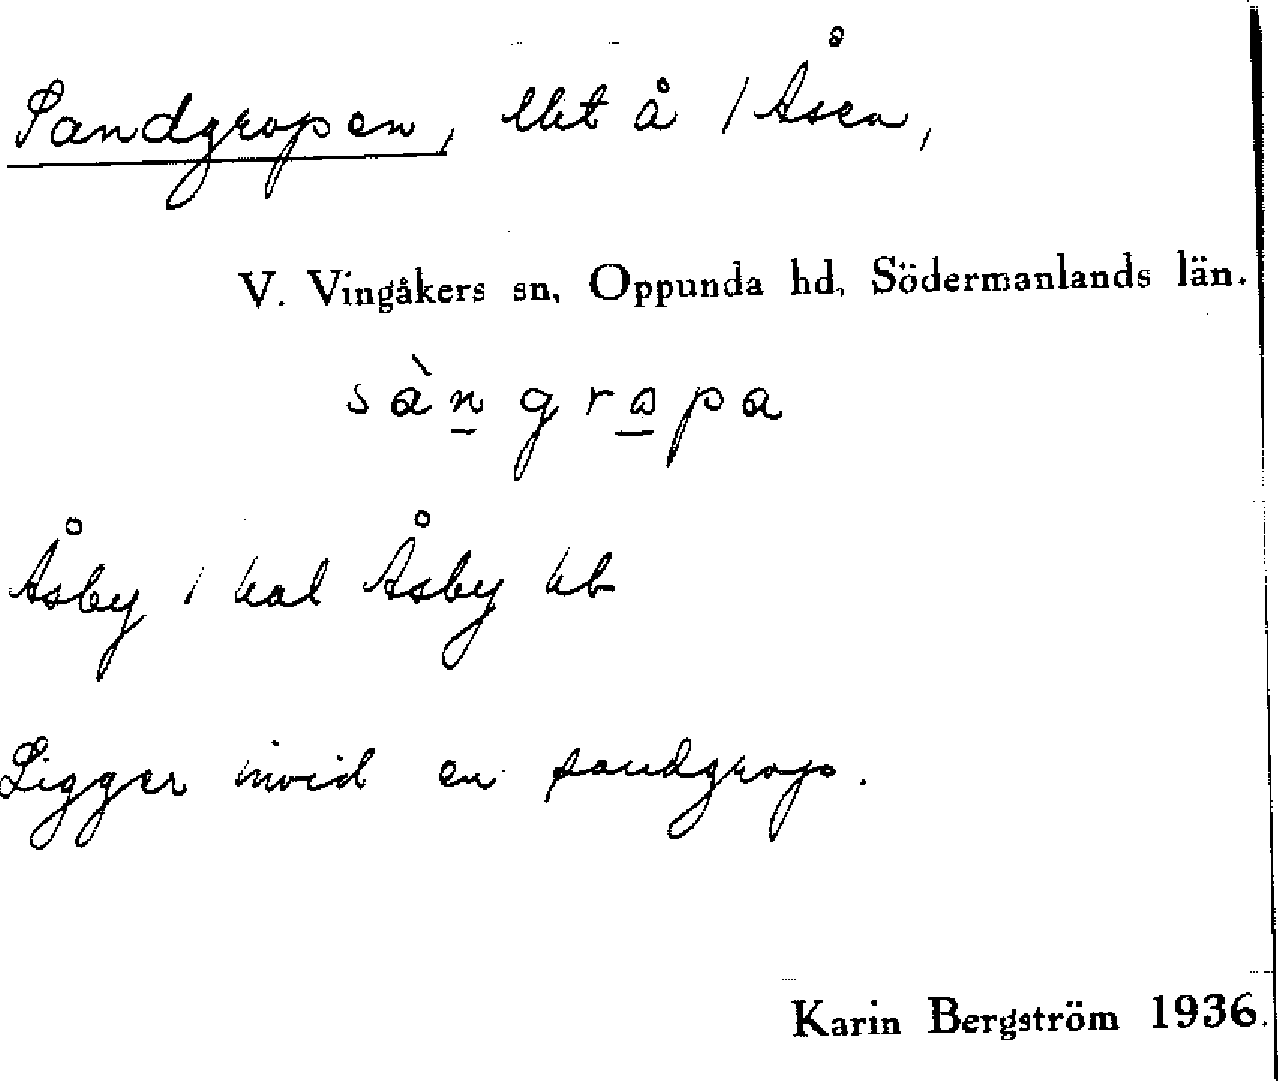 Sandgropen, lht å 1 Åsen,
V. Vingåkers sn, Oppunda hd, Södermanlands län.
sàngropa
Åsby 1 hal Åsby hb
Ligger invid en sandgrop.
Karin Bergström 1936.